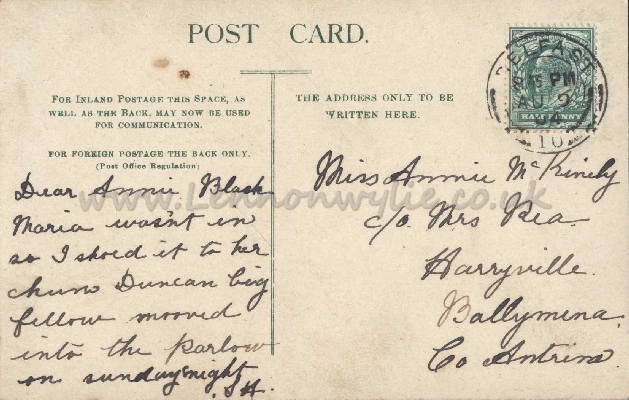 POST CARD.
FOR INLAND POSTAGE THIS SPACE, AS
WELL AS THE BACK, MAY NOW BE USED
FOR COMMUNICATION.
FOR FOREIGN POSTAGE THE BACK ONLY.
(Post Office Regulation)
THE ADDRESS ONLY TO BE
WRITTEN HERE.
BELFAST
8 15 PM
AU 2
04
10
HALFPENNY
Dear Annie Black
Maria wasn't in
so I shoed it to her
chum Duncan big
fellow mooved
into the parlow
on sunday night
S H.
Miss Annie McKinely
c/o Mrs Rea
Harryville.
Ballymena.
Co Antrim
www.Lennonwylie.co.uk